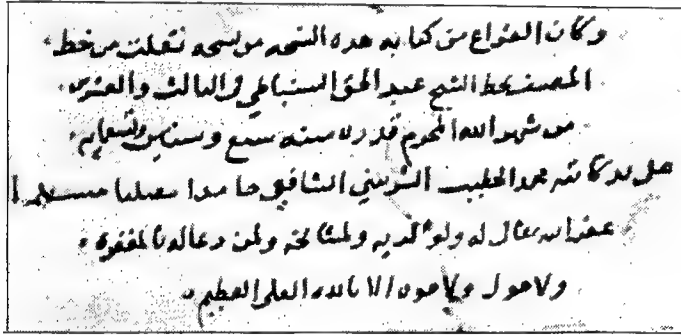 وكان الفراغ من كتابه هده النسحه من نسحه نقلت من خط
المصنف بخط الشيخ عبد الحق السنباطي في الثالث والعشرين
من شهر الله المحرم قدره سنه سبع وستين وتسعمايه
على يد كاتبه محمد الخطيب الشربيني الشافعي حامدا مصليا مسلما
غفر الله تعالى له ولوالديه ولمشايخه ولمن دعا له بالمغفره
ولا حول ولا قوه الا بالله العلي العظيم